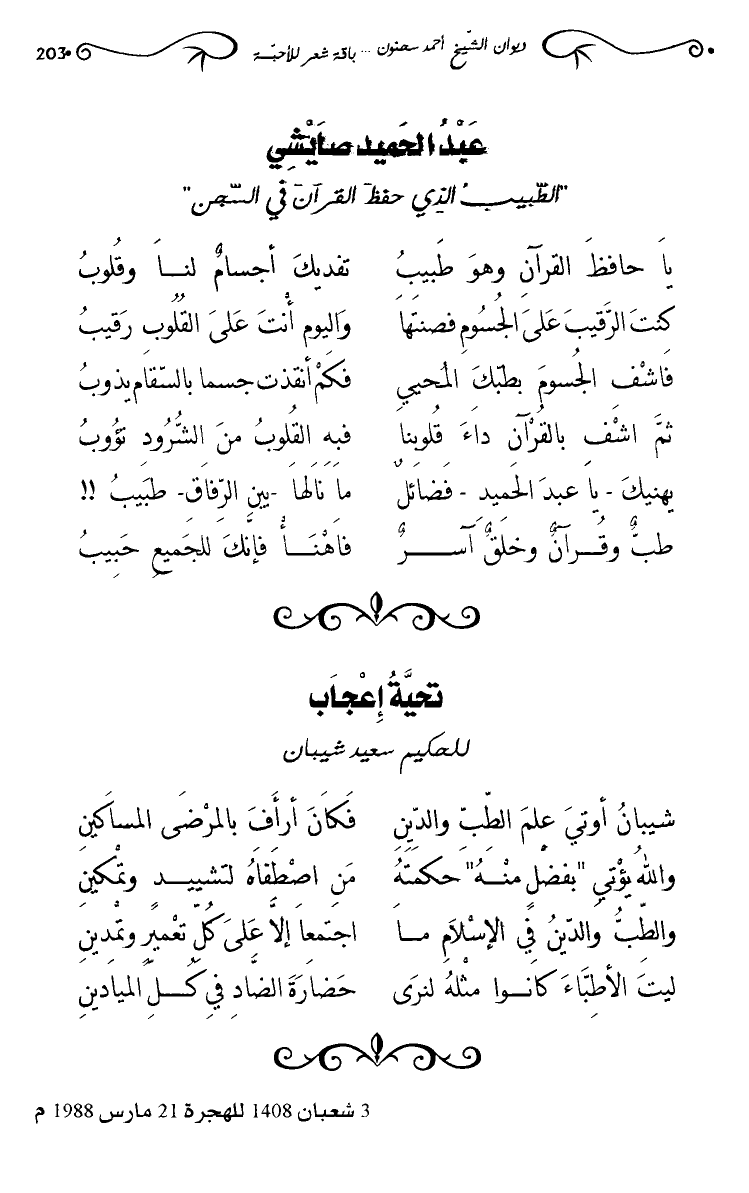 ديوان الشّيخ أحمد سحنون ... باقة شعر للأحبّة 203
عَبْدُ الحَميد صَايْشي
"الطّبيبُ الذي حفظَ القرآنَ في السّجن"
يا حافظَ القرآنِ وهوَ طَبيبُ تفديكَ أجسامٌ لنــا وقُلوبُ
كنتَ الرَّقيبَ عَلىَ الجُسُومِ فصنتَها وَاليوم أنْتَ عَلىَ القُلُوبِ رَقيبُ
فاشْفِ الجُسومَ بطبّكَ المُحيي فكمْ أنقذت جسما بالسَّقام يذوبُ
ثمَّ اشْفِ بالقُرْآنِ داءَ قُلوبنا فبهِ القُلوبُ منَ الشُّرُودِ تؤُوبُ
يهنيكَ - يا عبدَ الحَميدِ - فضَائلٌ ما نالهَا -بينَ الرِّفاق- طَبيبُ !!
طبٌّ وقُــرآنٌ وخلقٌ آســـرٌ فاهْنَـــأْ فإنّكَ للجَميعِ حَبيبُ
تحيَّةُ إِعْجاَب
للحكيم سعيد شيبان
شيبانُ أوتيَ علمَ الطّبّ والدّينِ فَكانَ أرأَفَ بالمرْضَى المسَاكينِ
واللهُ يُؤْتي "بفضلٍ منْــهُ" حكمتَهُ مَنِ اصْطَفاهُ لتَشييــد وتمْكينِ
والطّبُّ والدّينُ في الإسْلاَمِ مــا اجتمعاَ إلاَّ عَلىَ كُلِّ تَعْميرٍ وتمْدينِ
ليتَ الأطبَّاءَ كانــوا مثلَهُ لنرَى حَضارَةَ الضَّادِ في كُــلِّ الميادينِ
3 شعبان 1408 للهجرة 21 مارس 1988 م